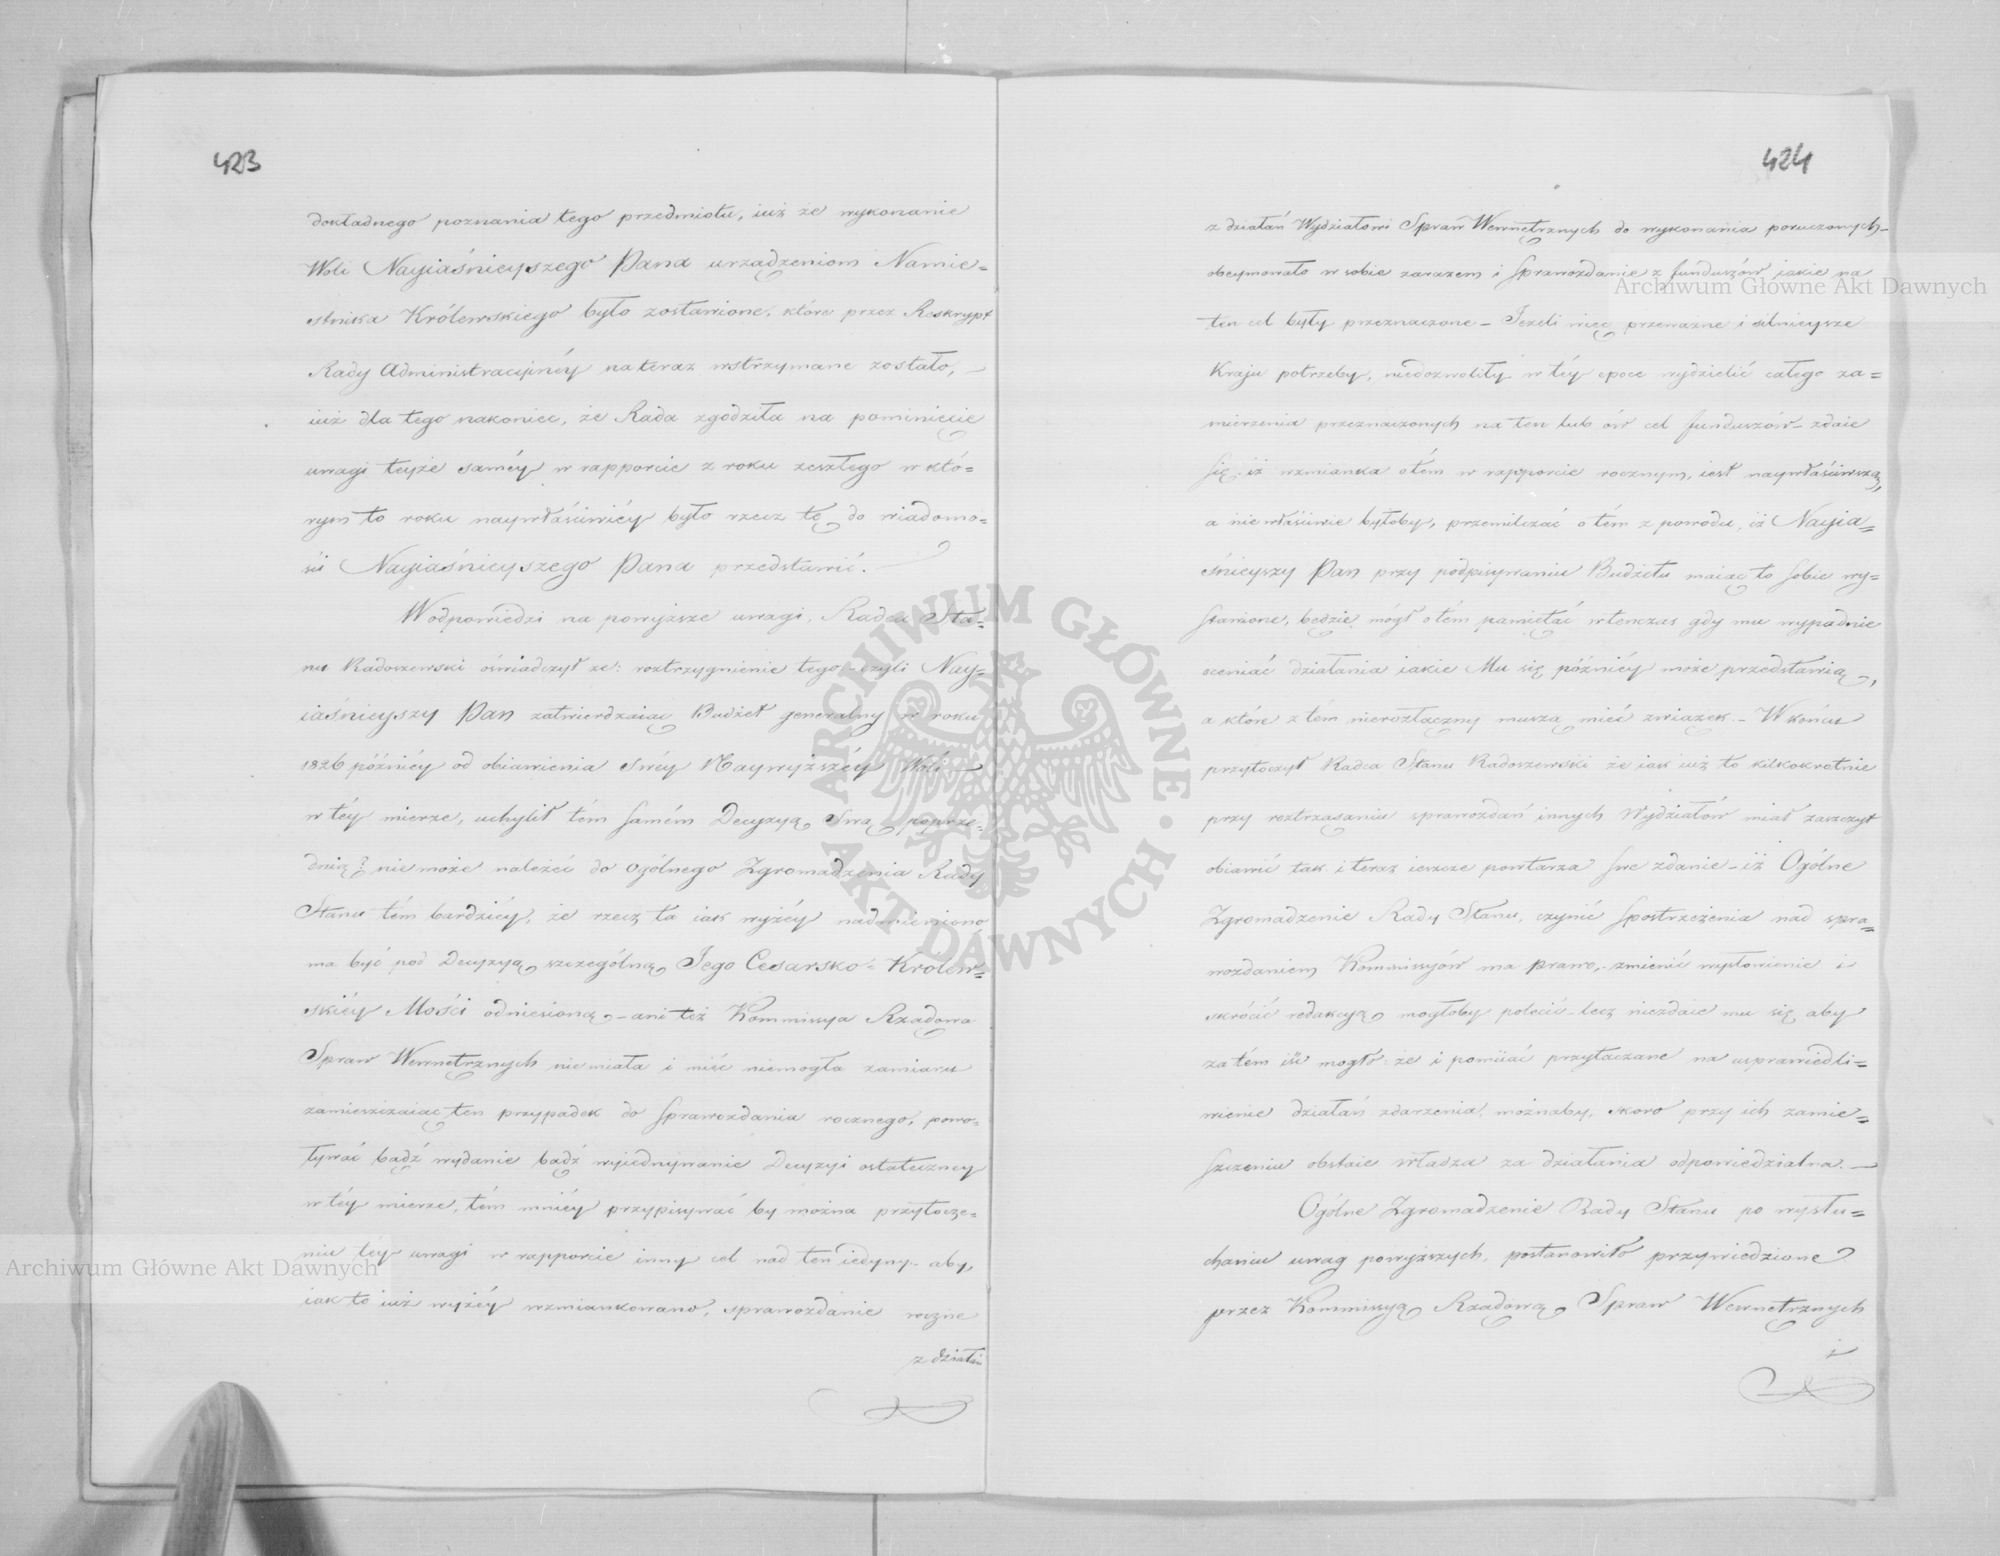 423
dokładnego poznania tego przedmiotu, iuż że wykonanie
Woli Nayiaśnieyszego Pana urządzeniom Namie=
stnika Królewskiego było zostawione, które przez Reskrypt
Rady Administracyinéy na teraz wstrzymane zostało, —
iuż dla tego nakoniec, że Rada zgodziła na pominięcie
uwagi teyże saméy w rapporcie z roku zeszłego w któ=
rym to roku naywłaściwiéy było rzecz tę do wiadomo=
ści Nayiaśnieyszego Pana przedstawić. —
W odpowiedzi na powyższe uwagi, Radca Sta=
nu Radoszewski oświadczył że: roztrzygnienie tego – czyli Nay=
iaśnieyszy Pan zatwierdzaiąc Budżet generalny w roku
1826 późniéy od obiawienia Swéy Naywyższéy Woli —
w téy mierze, uchylił tém samém Decyzyą Swą poprze=
dnią? nie może należeć do ogólnego Zgromadzenia Rady
Stanu tém bardziéy, że rzecz ta iak wyżéy nadmieniono
ma być pod Decyzyą szczególną Jego Cesarsko = Królew=
skiéy Mości odniesioną – ani też Kommissya Rządowa
Spraw Wewnętrznych nie miała i mieć niemogła zamiaru
zamieszczaiąc ten przypadek do Sprawozdania rocznego, powo=
ływać bądź wydanie bądź wyiednywanie Decyzyi ostateczney
w téy mierze, tém mniéy przypisywać by można przytocze=
niu téy uwagi w rapporcie inny cel nad ten iedyny – aby,
iak to iuż wyżéy wzmiankowano, sprawozdanie roczne
z działań
424
z działań Wydziałowi Spraw Wewnętrznych do wykonania poruczonych –
obeymowało w sobie zarazem i Sprawozdanie z funduszów iakie na
ten cel były przeznaczone – Jeżeli więc przeważne i silnieysze
Kraju potrzeby, niedozwoliły w téy epoce wydzielić całego za=
mierzenia przeznaczonych na ten lub ów cel funduszów – zdaie
się, iż wzmianka o tém w rapporcie rocznym, iest naywłaściwszą,
a nie właściwie byłoby, przemilczać o tém z powodu, iż Nayia=
śnieyszy Pan przy podpisywaniu Budżetu maiąc to sobie wy=
stawione, będzie mógł o tém pamiętać wtenczas gdy mu wypadnie
oceniać działania iakie Mu się późniéy może przedstawią,
a które z tém nierozłączny muszą mieć związek. – W końcu
przytoczył Radca Stanu Radoszewski że iak iuż to kilkokrotnie
przy roztrząsaniu sprawozdań innych Wydziałów miał zaszczyt
obiawić tak i teraz ieszcze powtarza swe zdanie – iż Ogólne
Zgromadzenie Rady Stanu, czynić spostrzeżenia nad spra=
wozdaniem Kommissyów ma prawo, zmienić wysłowienie i
skrócić redakcyą mogłoby polecić – lecz niezdaie mu się aby
zatém iść mogło: że i pomiiać przytaczane na usprawiedli=
wienie działań zdarzenia, możnaby, skoro przy ich zamie=
szczeniu obstaie władza za działania odpowiedzialna. —
Ogólne Zgromadzenie Rady Stanu po wysłu=
chaniu uwag powyższych, postanowiło przywiedzione
przez Kommissyą Rządową Spraw Wewnętrznych
i
Archiwum Główne Akt Dawnych
Archiwum Główne Akt Dawnych
ARCHIWUM GŁÓWNE • AKT DAWNYCH •